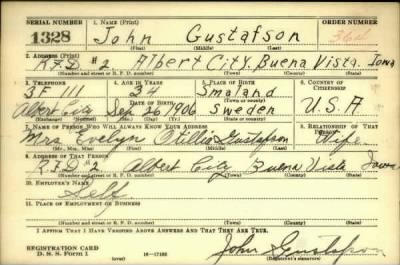 SERIAL NUMBER 1. NAME (Print) ORDER NUMBER
1328 John Gustafson 364
(First) (Middle) (Last)
2. ADDRESS (Print)
R.F.D. #2 Albert City, Buena Vista, Iowa
(Number and street or R. F. D. number) (Town) (County) (State)
3. TELEPHONE 4. AGE IN YEARS 5. PLACE OF BIRTH 6. COUNTRY OF CITIZENSHIP
3F 111 34 Smaland
DATE OF BIRTH (Town or county)
Albert City Sep 26 1906 Sweden U.S.A
(Exchange) (Mo.) (Day) (Yr.) (State or country)
7. NAME OF PERSON WHO WILL ALWAYS KNOW YOUR ADDRESS 8. RELATIONSHIP OF THAT PERSON
Mrs Evelyn Ottillia Gustafson Wife
(Mr., Mrs., Miss) (First) (Middle) (Last)
9. ADDRESS OF THAT PERSON
R.F.D #2 Albert City Buena Vista Iowa
(Number and street or R. F. D. number) (Town) (County) (State)
10. EMPLOYER'S NAME
Self
11. PLACE OF EMPLOYMENT OR BUSINESS
(Number and street or R. F. D. number) (Town) (County) (State)
I AFFIRM THAT I HAVE VERIFIED ABOVE ANSWERS AND THAT THEY ARE TRUE.
REGISTRATION CARD
D. S. S. Form 1 (over) 16—17105 John Gustafson
(Registrant's signature)